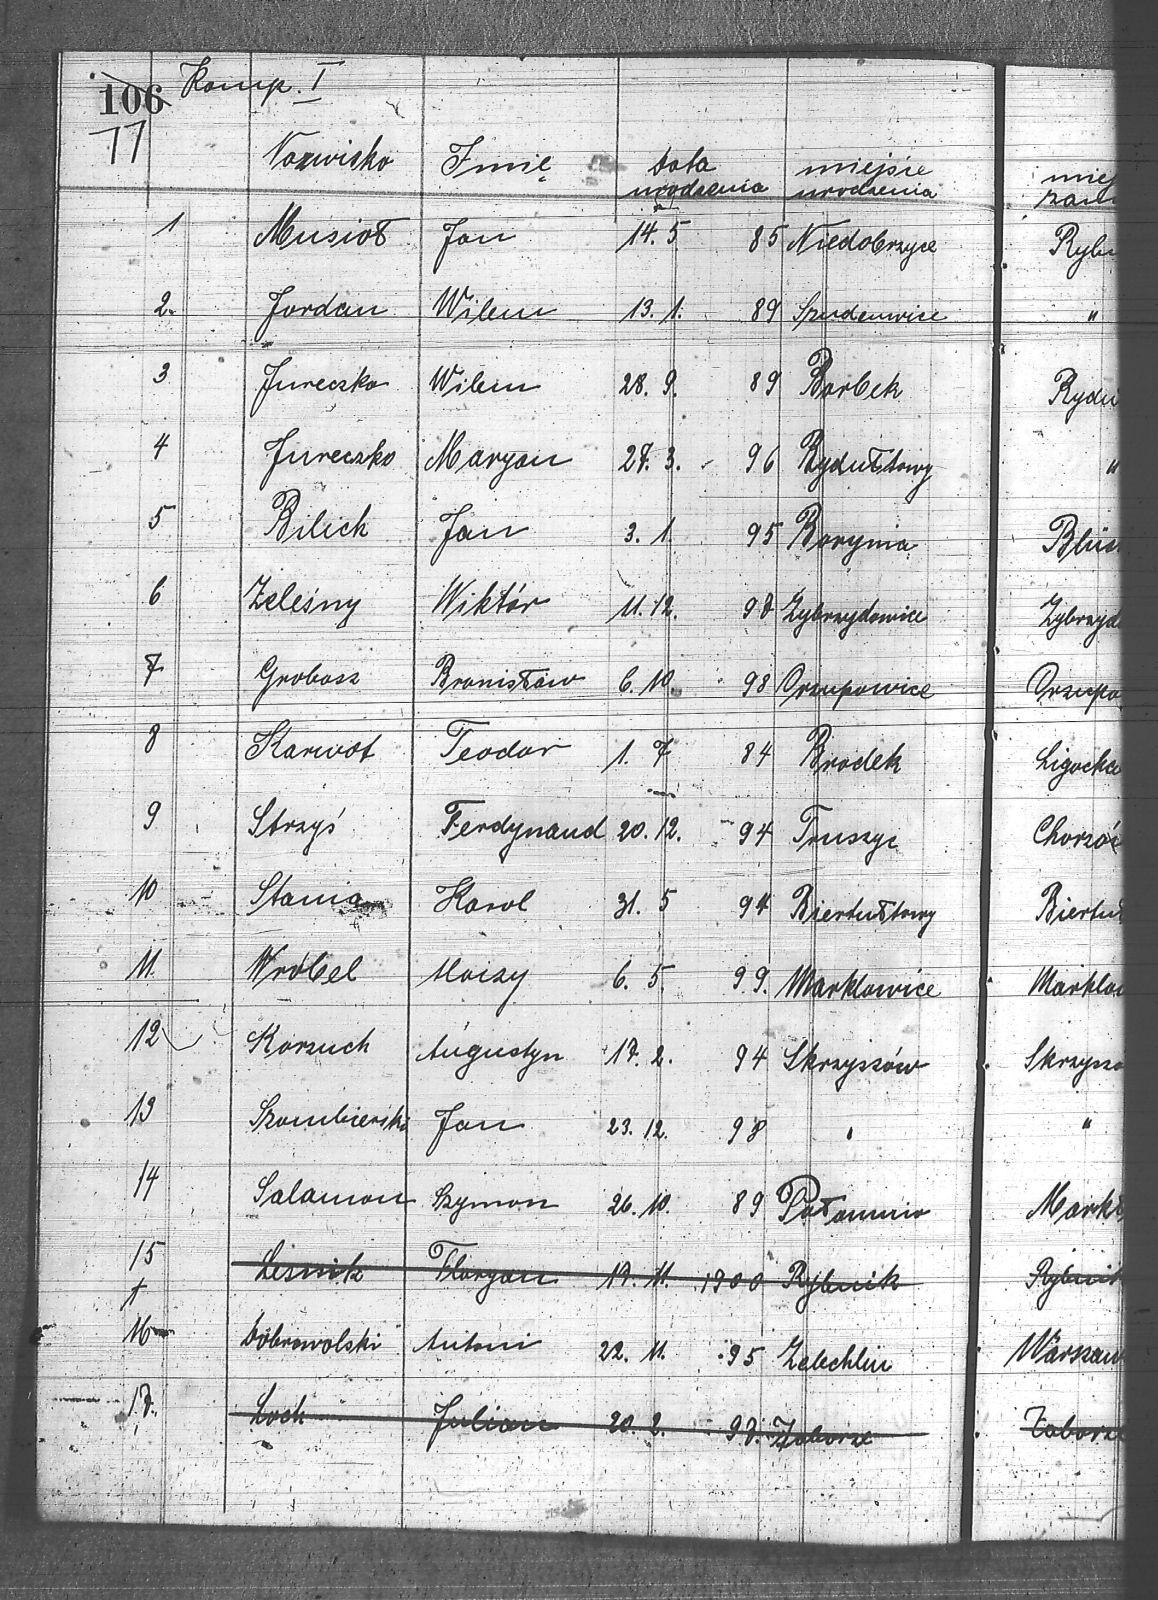 106 Komp. I
77
Nazwisko Imię data urodzenia miejsce urodzenia
1 Musioł Jan 14. 5 85 Niedobrzyce
2. Jordan Wilem 13. 1. 89
3 Jureczko Wilem 28. 9. 89 Borbek Rydu
4 Jureczko Maryan 27. 3. 96 Rydułtowy "
5 Bilich Jan 3. 1. 95 Borynia
6 Zeleśny Wiktór 11. 12. Zybrzydowice Zybrzyd
7 Grobosz Bronisław 6. 10. 98 Orzupowice Orzupo
8 Karwot Teodor 1. 7 84 Brodek Ligocka
9 Strzyś Ferdynand 20. 12. 94 Truszyc Chorzó
10 Stania Karol 31. 5 94 Biertułtowy Biertuł
11. Wróbel Aloizy 6. 5. 99. Marklowice Marklow
12 Korzuch Augustyn 17. 2. 94 Skrzyszów Skrzyszo
13 Szombierski Jan 23. 12. 98 "
14 Salamon Szymon 26. 10. 89 Mark
15 Lesnik Floryan 17. 11. 1900 Rybnik Rybnik
16 Dobrowolski Antoni 22. 11. 95 Zelechlin Warszaw
17. Loch Julian 20. 2. Zaborze Zaborze